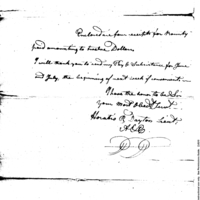 Enclosed are four receipts for Bounty
paid amounting to twelve Dollars
I will thank you to send my Pay & Subsistence for June
and July, the beginning of next week if convenient —
I have the honor to be Sir
your most Obedt Servt
Horatio R Lieut